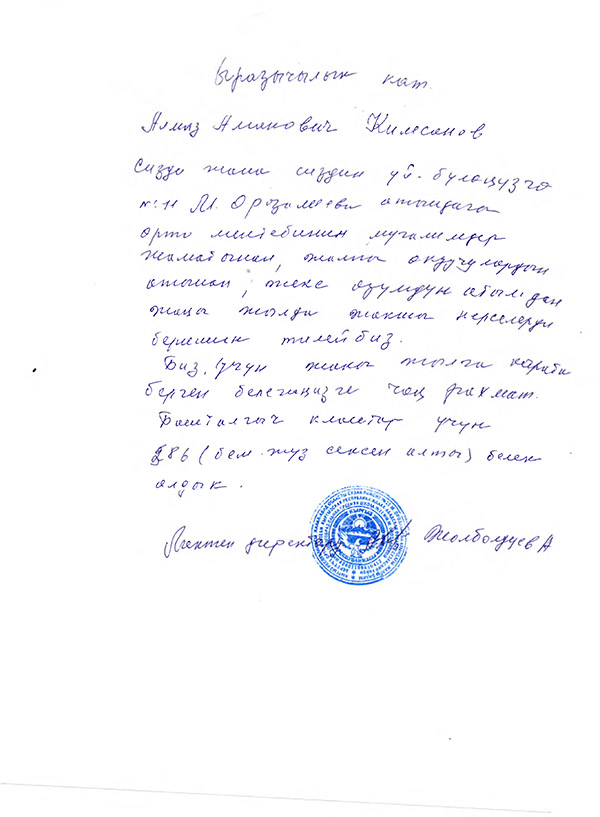 Ыразычылык кат.
Алмаз Аманович Кимсанов
Сизди жана сиздин үй-бүлөңүзгө
№ 11 М. Орозалиева атындагы
орто мектебинин мугалимдер
жаматынан, жалпы окуучулардын
атынан, жеке өзүмдүн атымдан
жаңы жылда жакшы нерселерди
беришин тилейбиз.
Биз үчүн жаңы жылга карата
берген белегиңизге чоң рахмат.
Башталгыч класстар үчүн
586 (беш жүз сексен алты) белек
алдык.
Мектеп директору Жолболдуев А